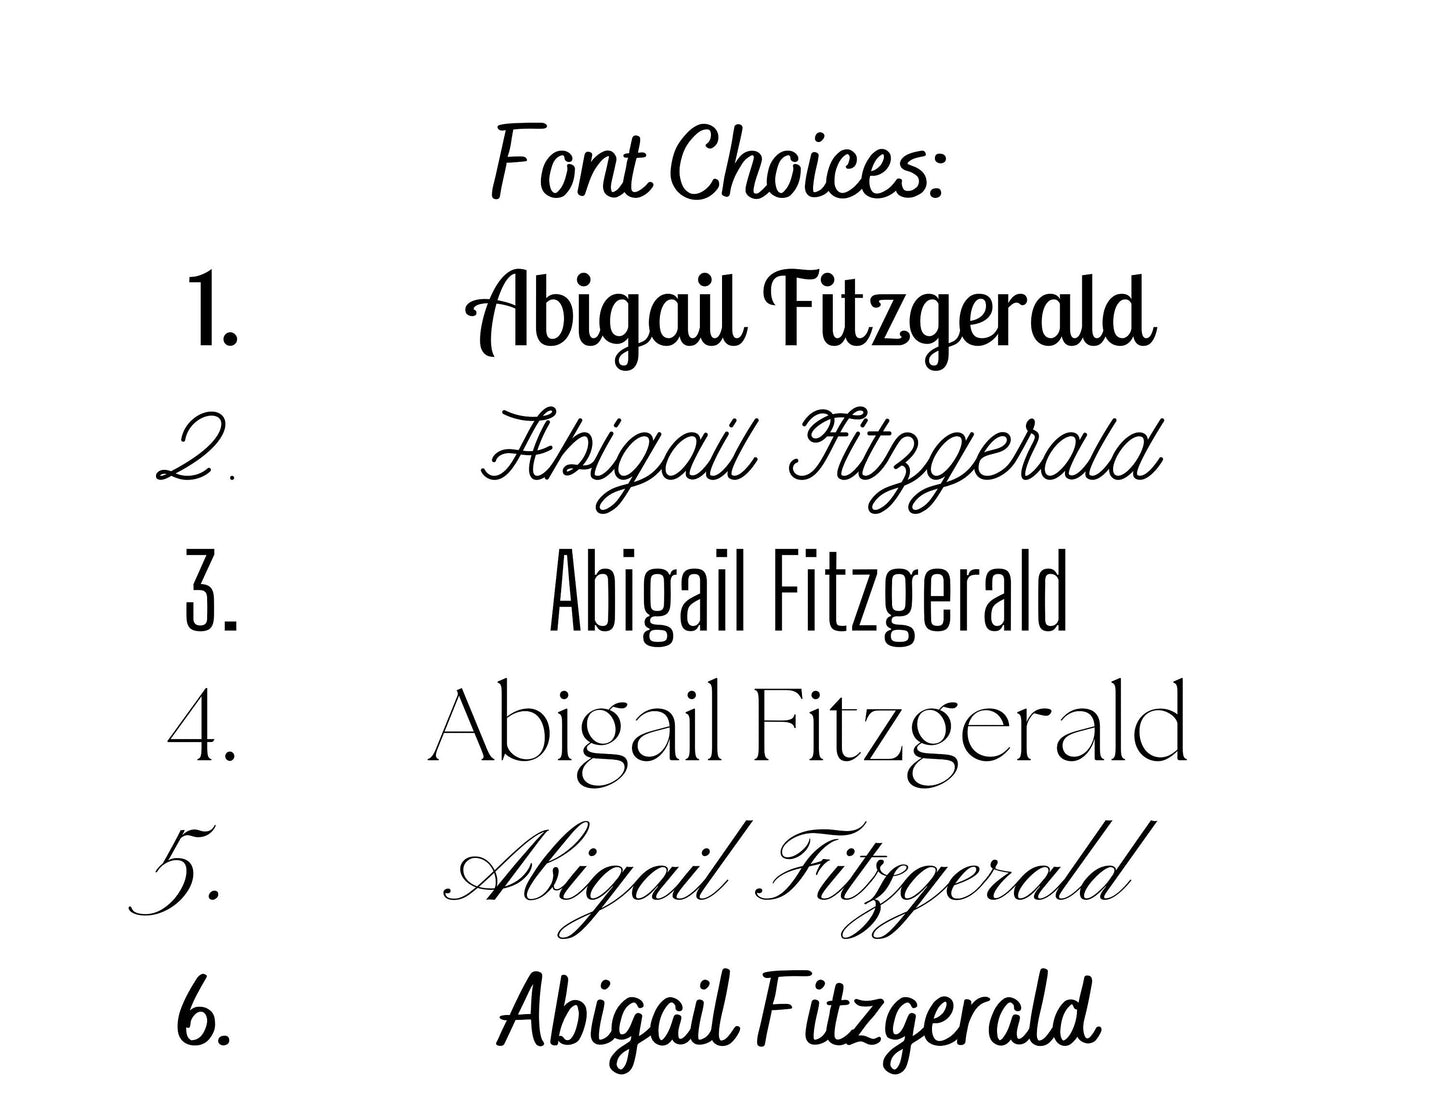 Font Choices:
1. Abigail Fitzgerald
2. Abigail Fitzgerald
3. Abigail Fitzgerald
4. Abigail Fitzgerald
5. Abigail Fitzgerald
6. Abigail Fitzgerald